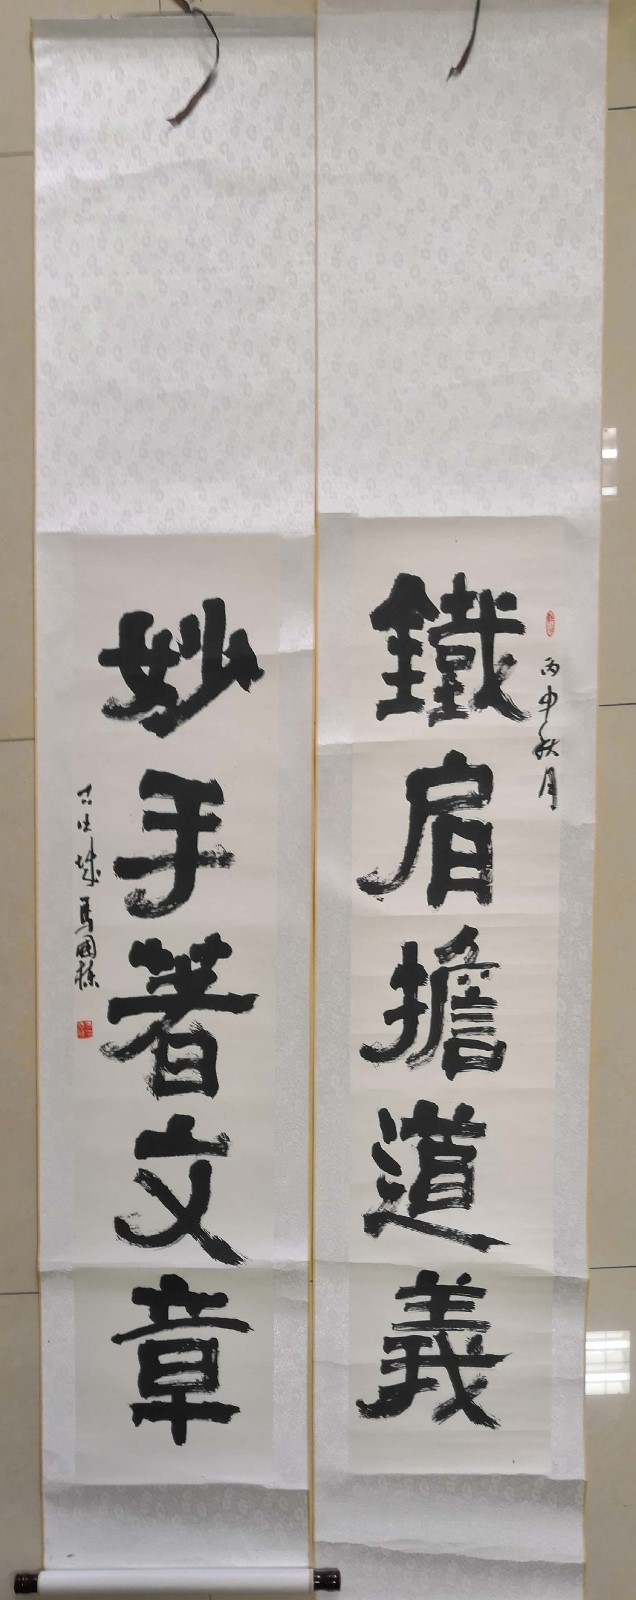 丙申秋月
鐵肩擔道義
妙手著文章
城馬國栋